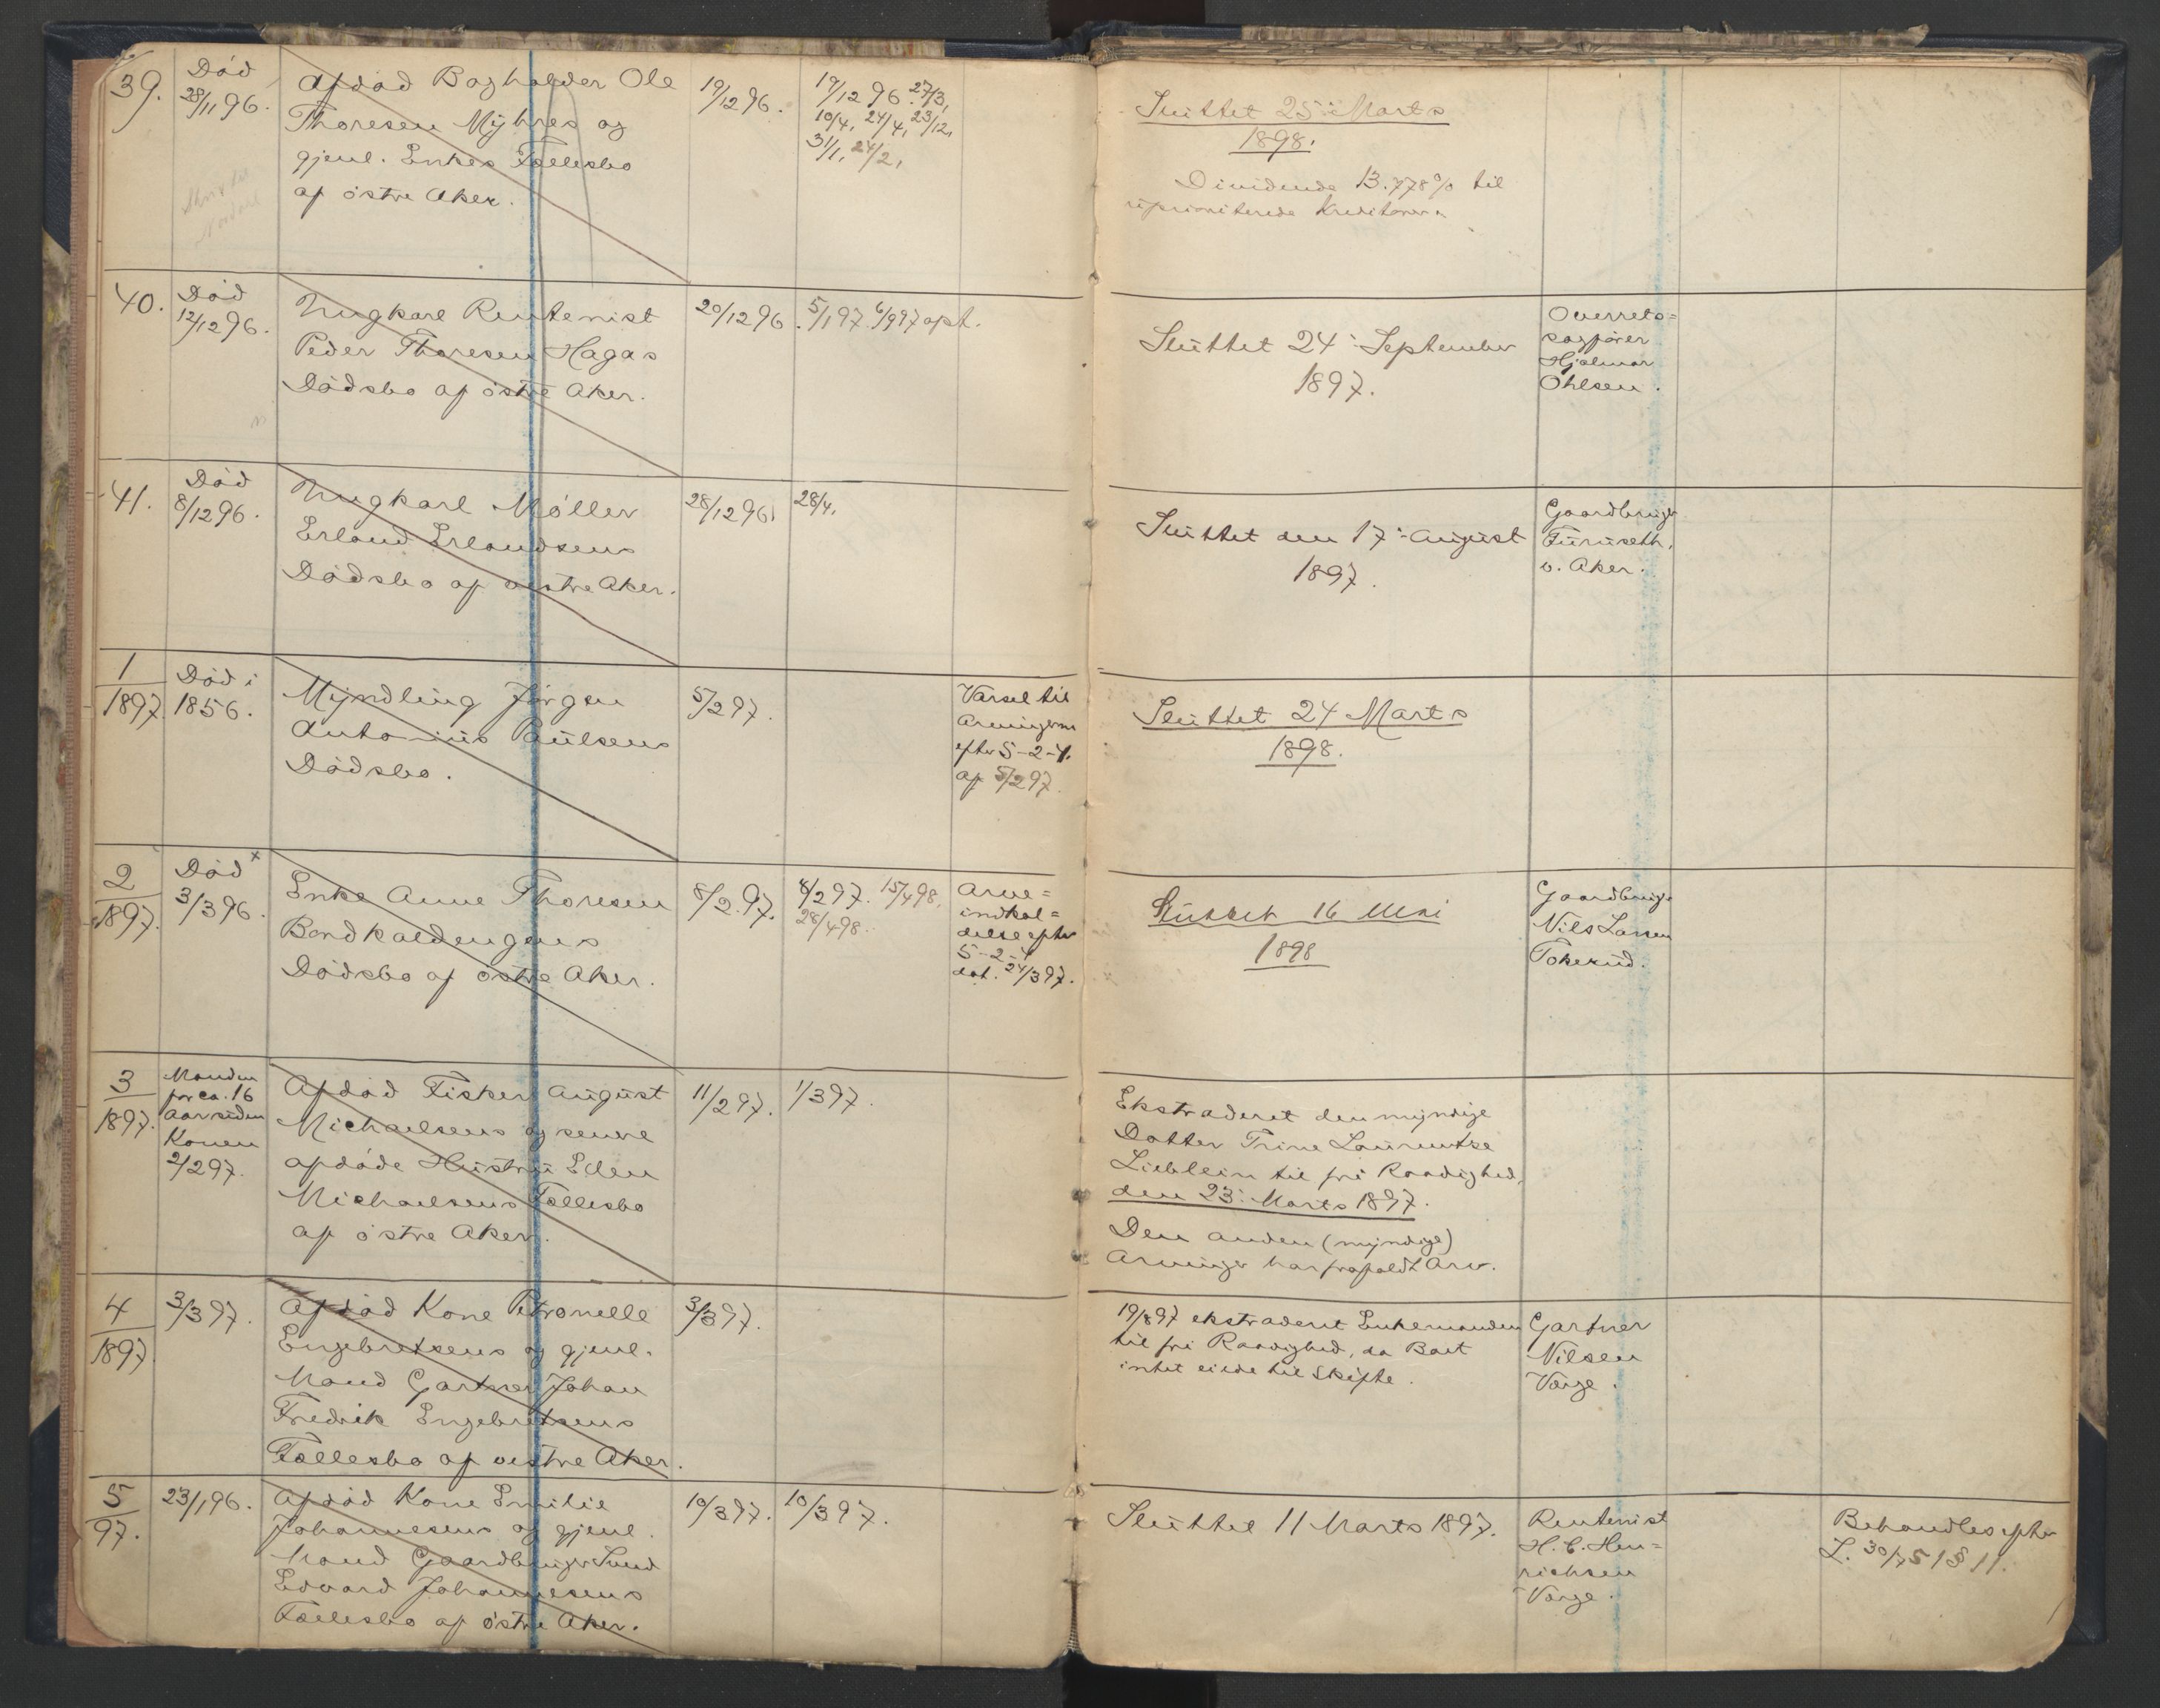 39.
Död
28/11 96.
Afdöd Bogholder Ole
Thoresen Myhres og
gjenl. Enkes Fællesbo
af östre Aker.
19/12 96.
19/12 96. 27/3,
10/4, 24/4, 23/12,
31/1, 24/2,
Sluttet 25: Marts
1898.
Dividende 13.778% til
uprioriterede Kreditorer.
40.
Död
12/12 96.
Ungkarl Rentenist
Peder Thoresen Hagas
Dödsbo af östre Aker.
20/12 96.
5/1 97. 6/9 97 apt.
Sluttet 24: September
1897.
Overrets=
sagförer
Hjalmar
Ohlsen.
41.
Död
8/12 96.
Ungkarl Möller
Erland Erlandsens
Dödsbo af vestre Aker.
28/12 96.
28/4.
Sluttet den 17: August
1897.
Gaardbruger
Furuseth,
v. Aker.
1
1897.
Död i
1856.
Myndling Jörgen
Antonius Paulsens
Dödsbo.
5/2 97.
Varsel til
Arvingerne
efter 5-2-4.
af 5/2 97.
Sluttet 24 Marts
1898.
2
1897.
Död x
3/3 96.
Enke Anne Thoresen
Bondkaldengens
Dödsbo af östre Aker.
8/2 97.
8/2 97. 15/4 98.
28/4 98.
Arve=
indkal=
delse efter
5-2-4
dat. 24/3 97.
Sluttet 16 Mai
1898
Gaardbruger
Nils Larsen
Tokerud.
3
1897.
Manden
for ca. 16
Aar siden
Konen
2/2 97.
Afdöd Fisker August
Michaelsens og senere
afdöde Hustru Ellen
Michaelsens Fællesbo
af östre Aker.
11/2 97.
1/3 97.
Ekstraderet den myndige
Datter Trine Laurentze
Lieblein til fri Raadighed,
den 23: Marts 1897.
Den anden (myndige)
Arvinger har frafaldt Arv.
4
1897
3/3 97.
Afdöd Kone Petronelle
Engebretsens og gjenl.
Mand Gartner Johan
Fredrik Engebretsens
Fællesbo af vestre Aker.
3/3 97.
19/8 97 ekstraderet Enkemanden
til fri Raadighed, da Boet
intet eiede til Skifte.
Gartner
Nilsen
Værge.
5
97.
23/1 96.
Afdöd Kone Emilie
Johannesens og gjenl.
Mand Gaardbruger Svend
Edvard Johannesens
Fællesbo af östre Aker.
10/3 97.
10/3 97.
Sluttet 11 Marts 1897.
Rentenist
H. C. Hen=
richsen
Værge.
Behandles efter
L. 30/7 51 § 11.